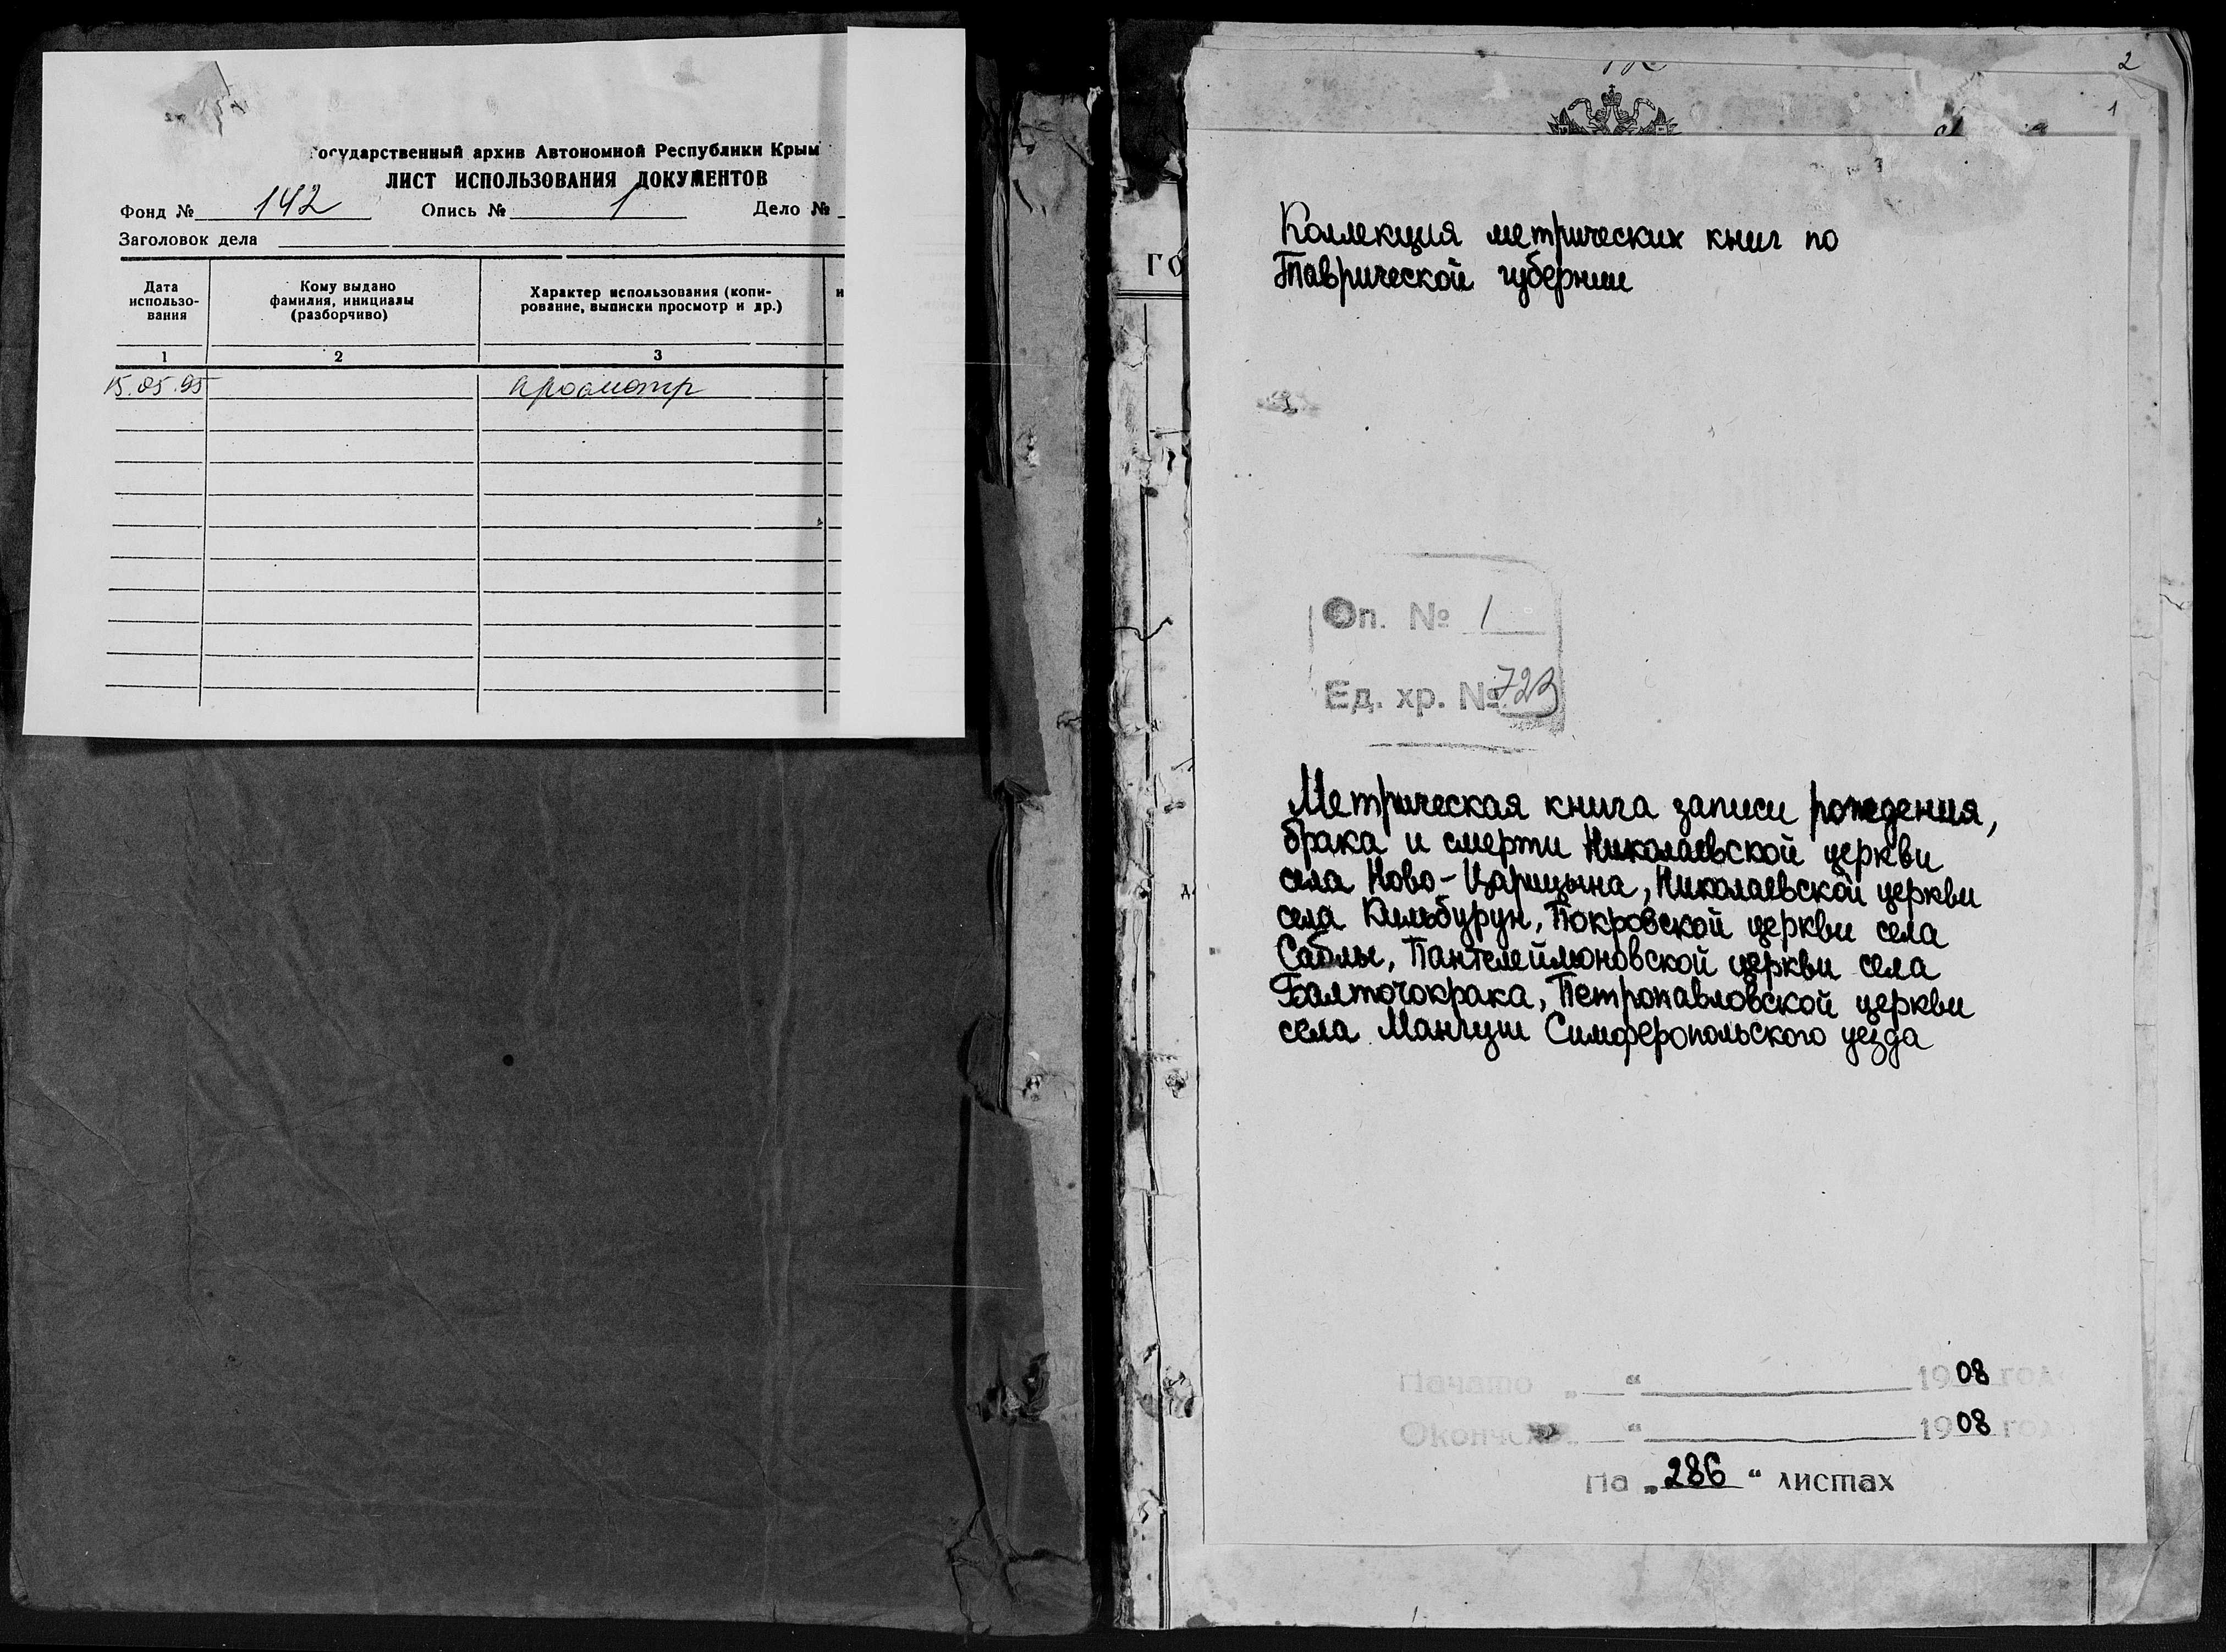 Государственный архив Автономной Республики Крым
ЛИСТ ИСПОЛЬЗОВАНИЯ ДОКУМЕНТОВ
Фонд № 142 Опись № 1 Дело №
Заголовок дела
Дата использо-вания
Кому выдано фамилия, инициалы (разборчиво)
Характер использования (копи-рование, выписки просмотр и др.)
1 2 3
15.05.95 просмотр
2
1
ГО
Коллекция метрических книг по
Таврической губернии
Оп. № 1
Ед. хр. № 723
Метрическая книга записи рождения,
брака и смерти Николаевской церкви
села Ново-Царицына, Николаевской церкви
села Кильбурун, Покровской церкви села
Саблы, Пантелеймоновской церкви села
Балточокрака, Петропавловской церкви
села Мангуш Симферопольского уезда
Начато „ “ 1908 год
Окончено “ 1908 год
На „286“ листах